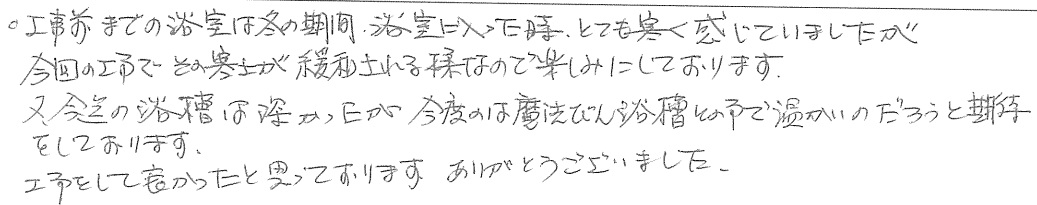 ○工事前までの浴室は冬の期間、浴室に入った時、とても寒く感じていましたが
今回の工事でその寒さが緩和される様なので楽しみにしております。
又、今迄の浴槽は深かったが今度のは魔法びん浴槽との事で温かいのだろうと期待
をしております。
工事をして良かったと思っております ありがとうございました。